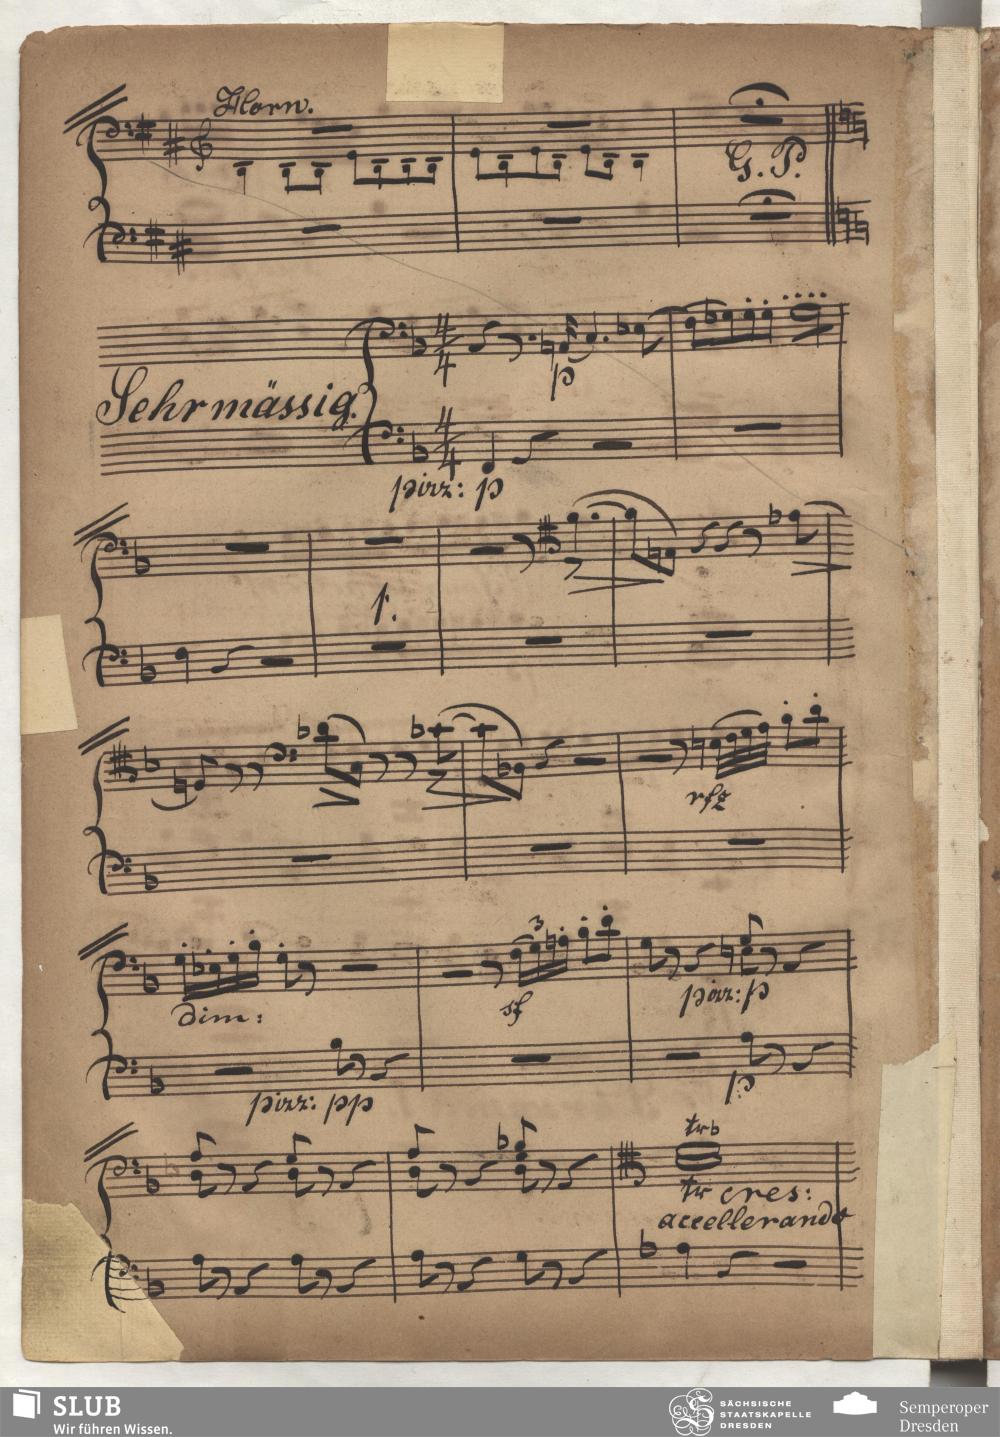 Horn.
G. P.
4
4
Sehr mässig.
p
4
4
pizz: p
1.
rfz
3
dim:
sf
pizz: p
pizz: pp
p
tr♭
tr cres:
accellerando
SLUB
Wir führen Wissen.
SÄCHSISCHE
STAATSKAPELLE
DRESDEN
Semperoper
Dresden